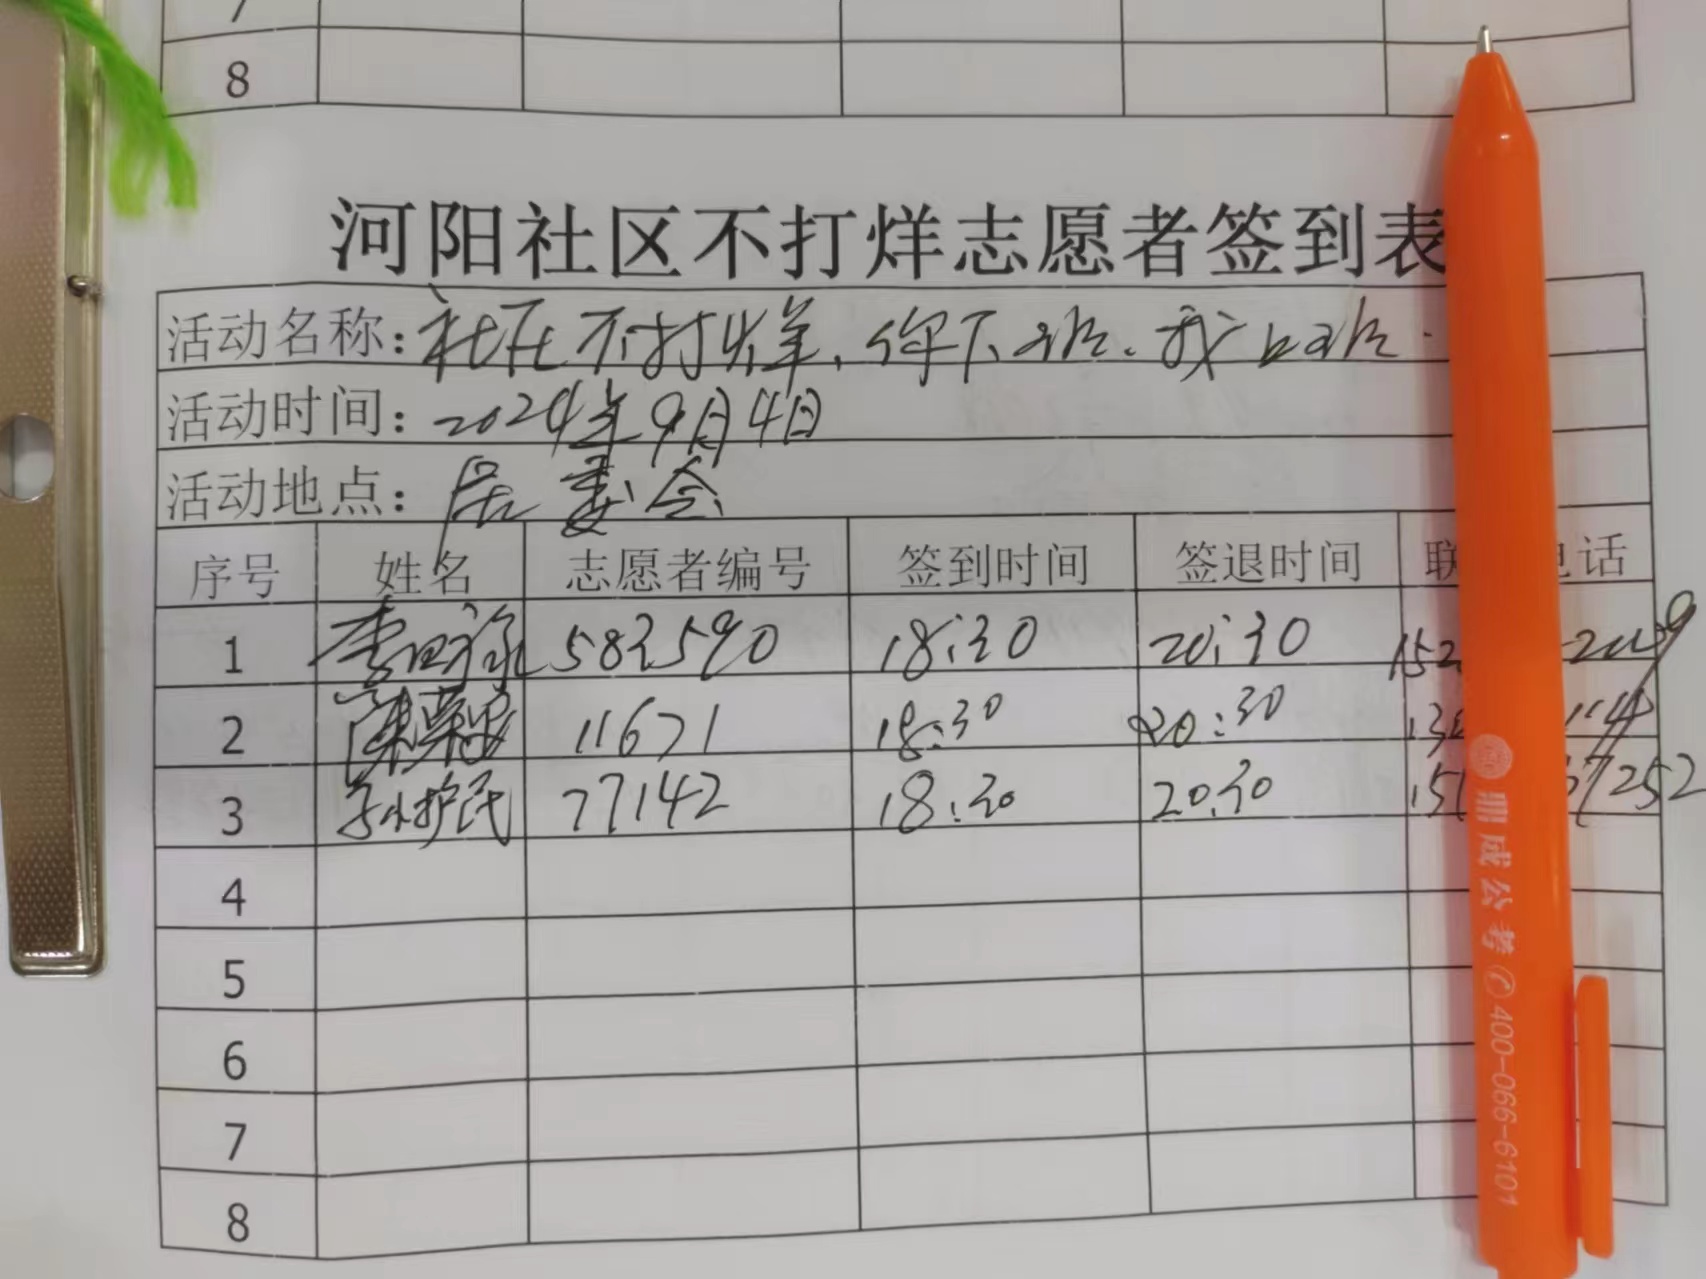 7
8
河阳社区不打烊志愿者签到表
活动名称：社区不打烊，你下班，我上班
活动时间：2024年9月4日
活动地点：居委会
序号 姓名 志愿者编号 签到时间 签退时间 联 电话
1 583590 18:30 20:30
2 11671 18:30 20:30
3 孙护民 77142 18:30 20:30
4
5
6
7
8
成公考 400-066-6101